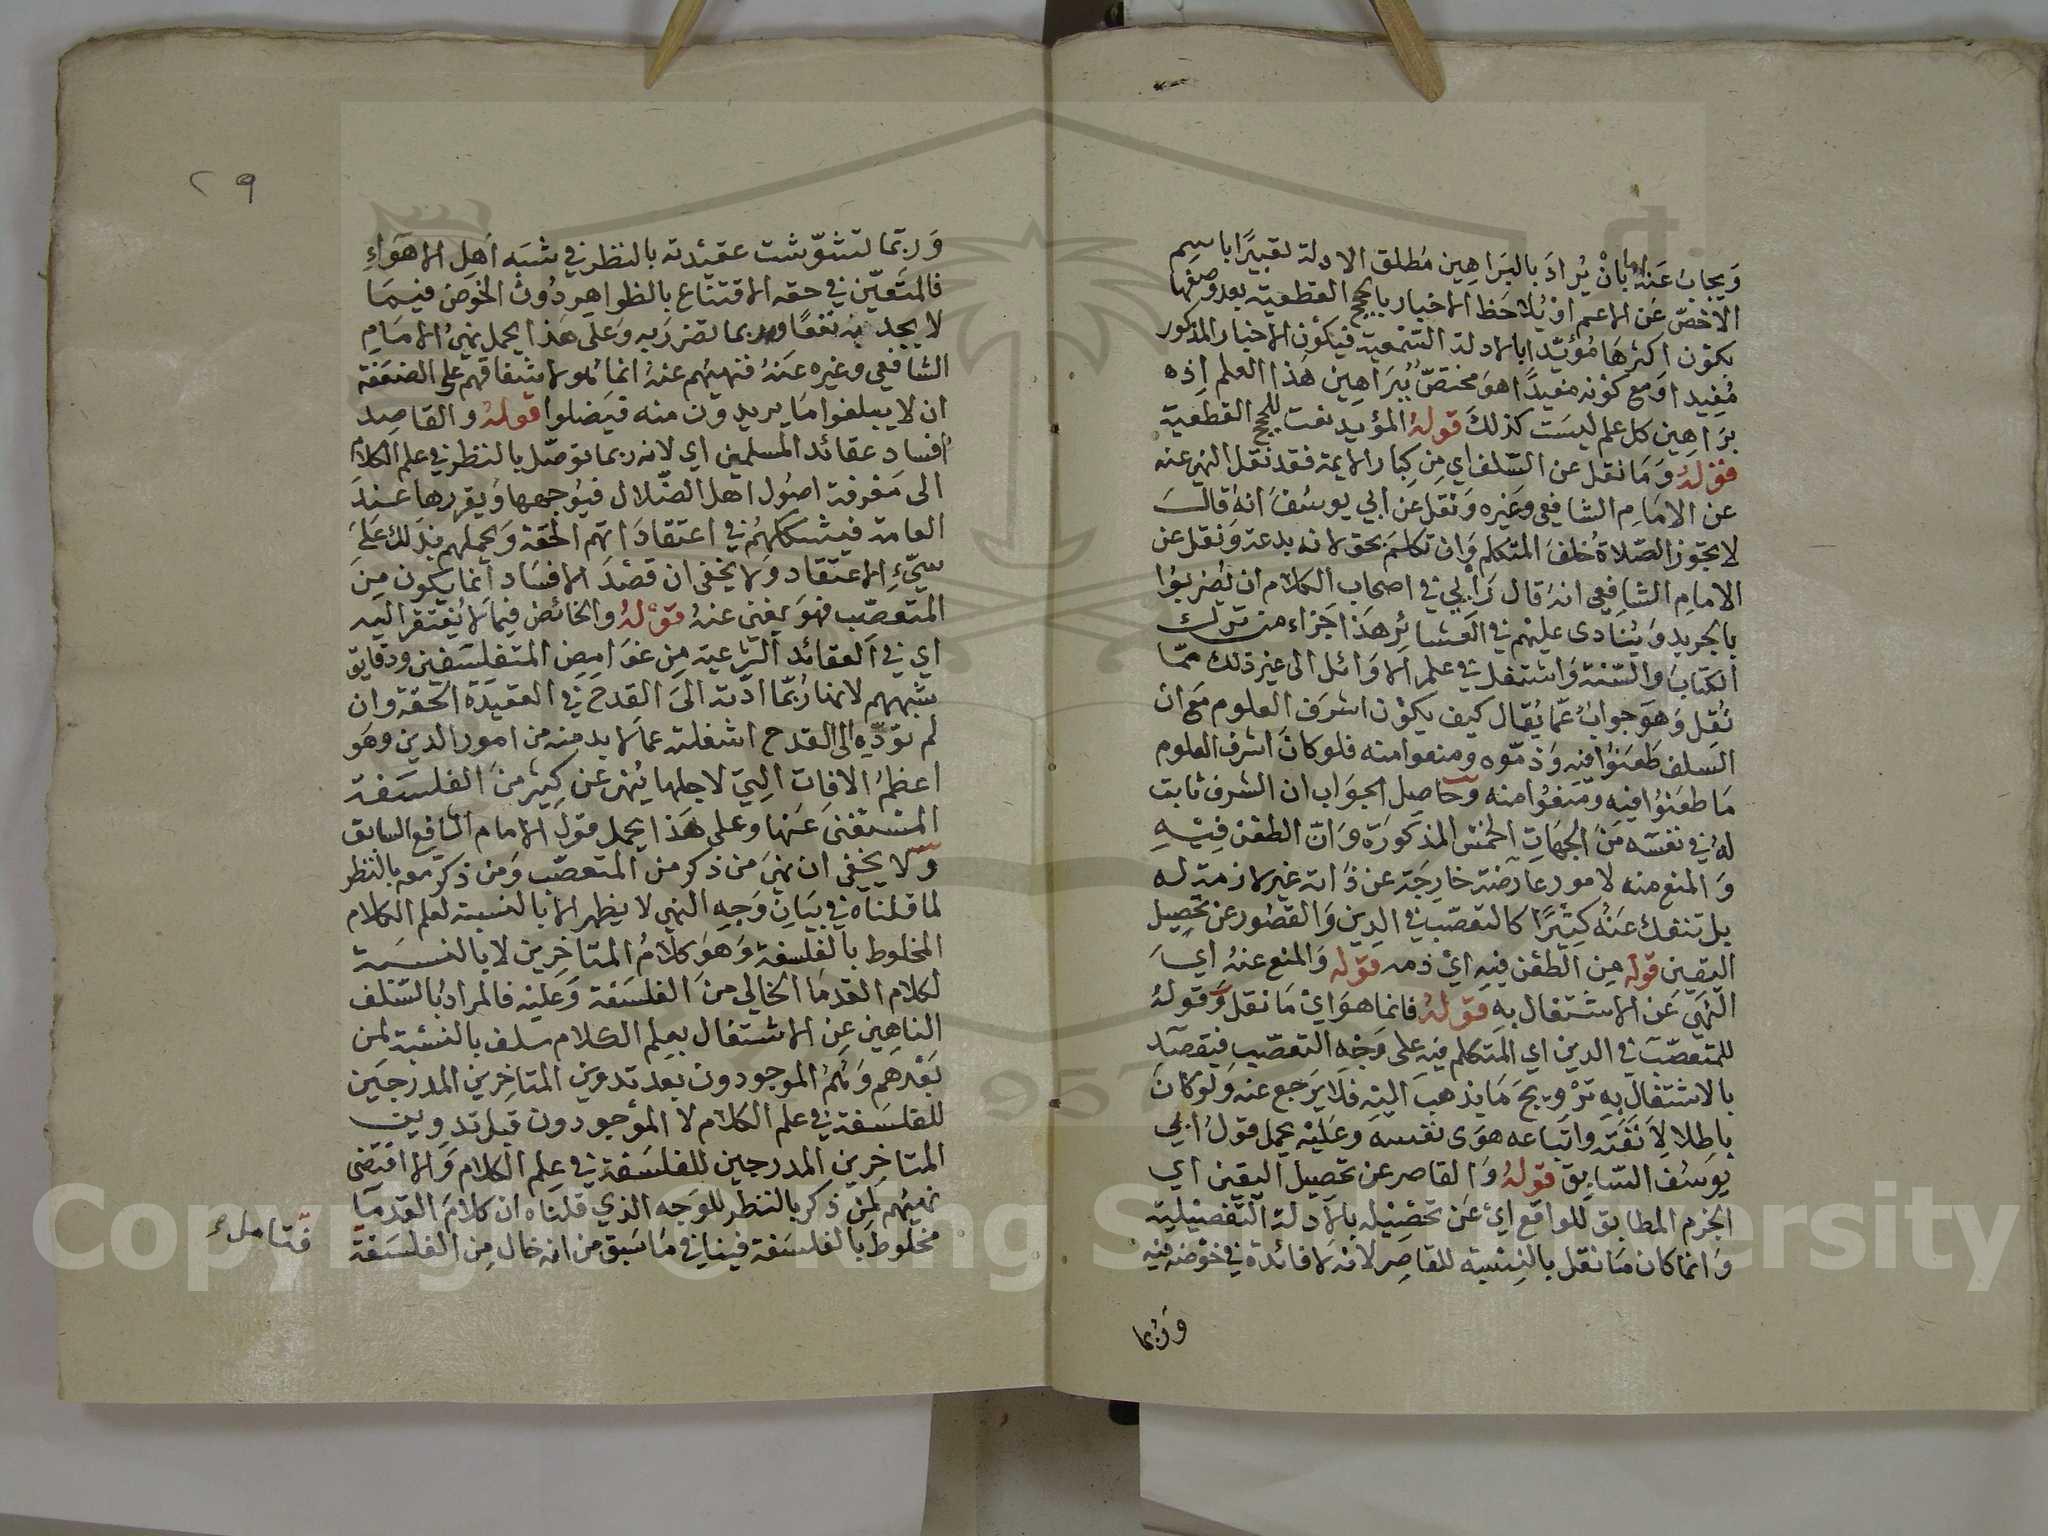 ويجاب عنه اما بان يراد بالبراهين مطلق الادلة تعبيرا باسم
الاخص عن الاعم او يلاحظ الاخبار بالحجج القطعية بعد وصفها
بكون اكثرها مؤيدا بالادلة السمعية فيكون الاخبار المذكور
مفيدا او مع كونه مفيدا هو مختص ببراهين هذا العلم اذ
براهين كل علم ليست كذلك قوله المؤيد نعت للحجج القطعية
قوله وما نقل عن السلف اي من كبار الايمة فقد نقل النهي عنه
عن الامام الشافعي وغيره ونقل عن ابي يوسف انه قال
لا يجوز الصلاة خلف المتكلم وان تكلم بحق لانه بدعة ونقل عن
الامام الشافعي انه قال رايي في اصحاب الكلام ان يضربوا
بالجريد وينادى عليهم في العشائر هذا جزاء من ترك
الكتاب والسنة واشتغل في علم الاوائل الى غير ذلك مما
نقل وهو جواب عما يقال كيف يكون اشرف العلوم مع ان
السلف طعنوا فيه وذموه ومنعوا منه فلو كان اشرف العلوم
ما طعنوا فيه ومنعوا منه وحاصل الجواب ان الشرف ثابت
له في نفسه من الجهات الخمس المذكورة وان الطعن فيه
والمنع منه لامور عارضة خارجة عن ذاته غير لازمة له
بل تنفك عنه كثيرا كالتعصب في الدين والقصور عن تحصيل
اليقين قوله من الطعن فيه اي ذمه قوله والمنع عنه اي
النهي عن الاشتغال به قوله فانما هو اي ما نقل وقوله
للمتعصب في الدين اي المتكلم فيه على وجه التعصب فيقصد
بالاشتغال به ترويج ما يذهب اليه فلا يرجع عنه ولو كان
باطلا لانفته واتباعه هوى نفسه وعليه يحمل قول ابي
يوسف السابق قوله والقاصر عن تحصيل اليقين اي
الجزم المطابق للواقع اي عن تحصيله بالادلة التفصيلية
وانما كان ما نقل بالنسبة للقاصر لانه لا فائدة في خوضه فيه
وربما
٢٩
وربما تشوشت عقيدته بالنظر في شبه اهل الاهواء
فالمتعين في حقه الاقتناع بالظواهر دون الخوض فيما
لا يجد به نفعا وربما تضرر به وعلى هذا يحمل نهي الامام
الشافعي وغيره عنه فنهيهم عنه انما هو لاشفاقهم على الضعفة
ان لا يبلغوا ما يريدون منه فيضلوا قوله والقاصد
افساد عقائد المسلمين اي لانه ربما توصل بالنظر في علم الكلام
الى معرفة اصول اهل الضلال فيوجهها ويقررها عند
العامة فيشككهم في اعتقاداتهم الحقة ويحملهم بذلك على
سيء الاعتقاد ولا يخفى ان قصد الافساد انما يكون من
المتعصب فهو يغني عنه قوله والخائض فيما لا يفتقر اليه
اي في العقائد الشرعية من غوامض المتفلسفين ودقايق
شبههم لانها ربما ادته الى القدح في العقيدة الحقة وان
لم تؤده الى القدح اشغلته عما لا بد منه من امور الدين وهو
اعظم الافات التي لاجلها ينهى عن كثير من الفلسفة
المستغنى عنها وعلى هذا يحمل قول الامام الشافعي السابق
ولا يخفى ان نهي من ذكر من المتعصب ومن ذكر معه بالنظر
لما قلناه في بيان وجه النهي لا يظهر الا بالنسبة لعلم الكلام
المخلوط بالفلسفة وهو كلام المتاخرين لا بالنسبة
لكلام القدما الخالي من الفلسفة وعليه فالمراد بالسلف
الناهين عن الاشتغال بعلم الكلام سلف بالنسبة لمن
بعدهم وهم الموجودون بعد تدوين المتاخرين المدرجين
للفلسفة في علم الكلام لا الموجودون قبل تدوين
المتاخرين المدرجين للفلسفة في علم الكلام والا اقتضى
نهيهم لمن ذكر بالنظر للوجه الذي قلناه ان كلام القدما
مخلوط بالفلسفة فينافي ما سبق من انه خال من الفلسفة
فتامله
Copyright © King Saud University
1957